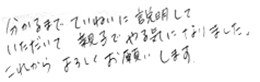 分かるまで ていねいに 説明して
いただいて 親子で やる気に なりました。
これから よろしく お願い します。